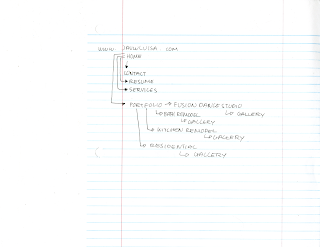 WWW. JALWLUISA .COM
HOME
CONTACT
RESUME
SERVICES
PORTFOLIO → FUSION DANCE STUDIO
↳ GALLERY
REMODEL
↳ GALLERY
KITCHEN REMODEL
↳ GALLERY
RESIDENTIAL
↳ GALLERY